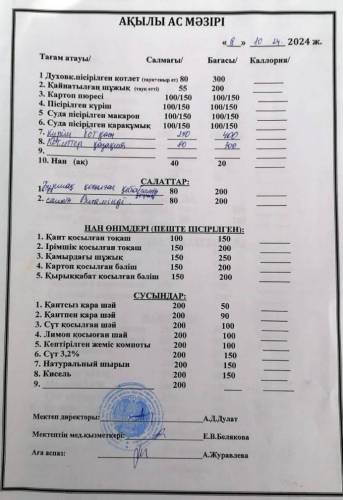 АҚЫЛЫ АС МӘЗІРІ
« 8 » 10 2024 ж.
Тағам атауы/ Салмағы/ Бағасы/ Каллория/
1 Духовк.пісірілген котлет (тауық+сиыр ет) 80 300
2. Қайнатылған шұжық (тауық еті) 55 200
3. Картоп пюресі 100/150 100/150
4. Пісірілген күріш 100/150 100/150
5 Суда пісірілген макарон 100/150 100/150
6. Суда пісірілген қарақұмық 100/150 100/150
7. 400
8. 80 300
9.
10. Нан (ақ) 40 20
САЛАТТАР:
1. 80 200
2. салат Витаминді 80 200
НАН ӨНІМДЕРІ (ПЕШТЕ ПІСІРІЛГЕН):
1. Қант қосылған тоқаш 100 150
2. Ірімшік қосылған тоқаш 150 200
3. Қамырдағы шұжық 150 250
4. Картоп қосылған бәліш 150 200
5. Қырыққабат қосылған бәліш 150 200
СУСЫНДАР:
1. Қантсыз қара шай 200 50
2. Қантпен қара шай 200 90
3. Сүт қосылған шай 200 100
4. Лимон қосылған шай 200 100
5. Кептірілген жеміс компоты 200 100
6. Сүт 3,2% 200 150
7. Натуральный шырын 200 150
8. Кисель 200 150
9. 200
Мектеп директоры: А.Д.Дулат
Мектептің мед.қызметкері: Е.В.Белякова
Аға аспаз: А.Журавлева